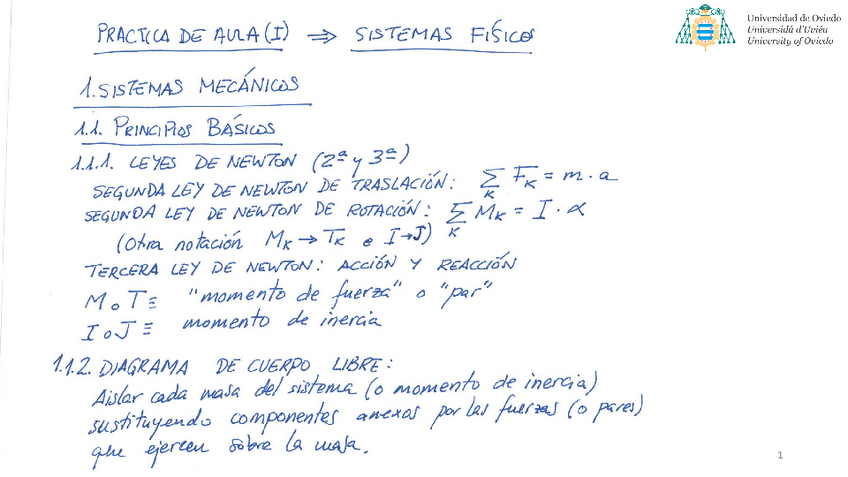 PRACTICA DE AULA (I) ⇒ SISTEMAS FÍSICOS
Universidad de Oviedo
Universidá d'Uviéu
University of Oviedo
1. SISTEMAS MECÁNICOS
1.1. PRINCIPIOS BÁSICOS
1.1.1. LEYES DE NEWTON (2ª y 3ª)
SEGUNDA LEY DE NEWTON DE TRASLACIÓN: Σ_K F_K = m · a
SEGUNDA LEY DE NEWTON DE ROTACIÓN: Σ_K M_K = I · α
(Otra notación M_K → T_K e I→J)
TERCERA LEY DE NEWTON: ACCIÓN Y REACCIÓN
M o T ≡ "momento de fuerza" o "par"
I o J ≡ momento de inercia
1.1.2. DIAGRAMA DE CUERPO LIBRE:
Aislar cada masa del sistema (o momento de inercia)
sustituyendo componentes anexos por las fuerzas (o pares)
que ejercen sobre la masa.
1